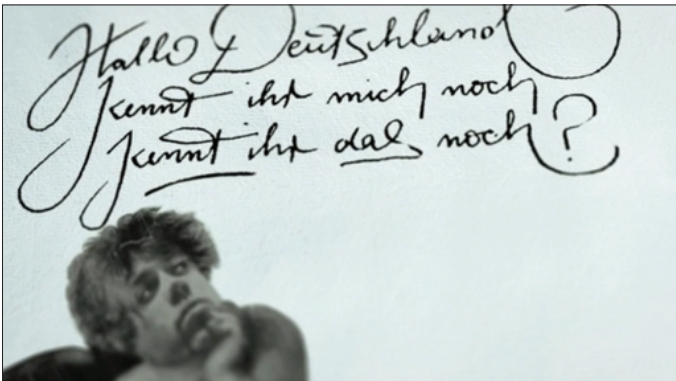 Hallo Deutschland
kennt ihr mich noch
kennt ihr das noch?